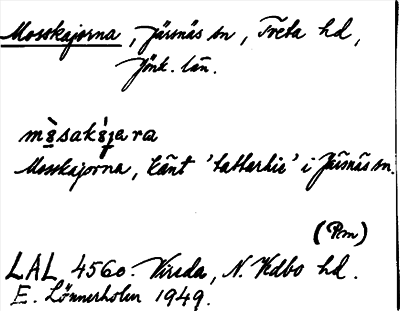 Mosskajorna, Järsnäs sn, Tveta hd,
Jönk. län.
Mosskajorna, känt 'tattarhie' i Järsnäs sn.
(Pm)
LAL 4560. Vireda, N. Vedbo hd.
E. Lönnerholm 1949.